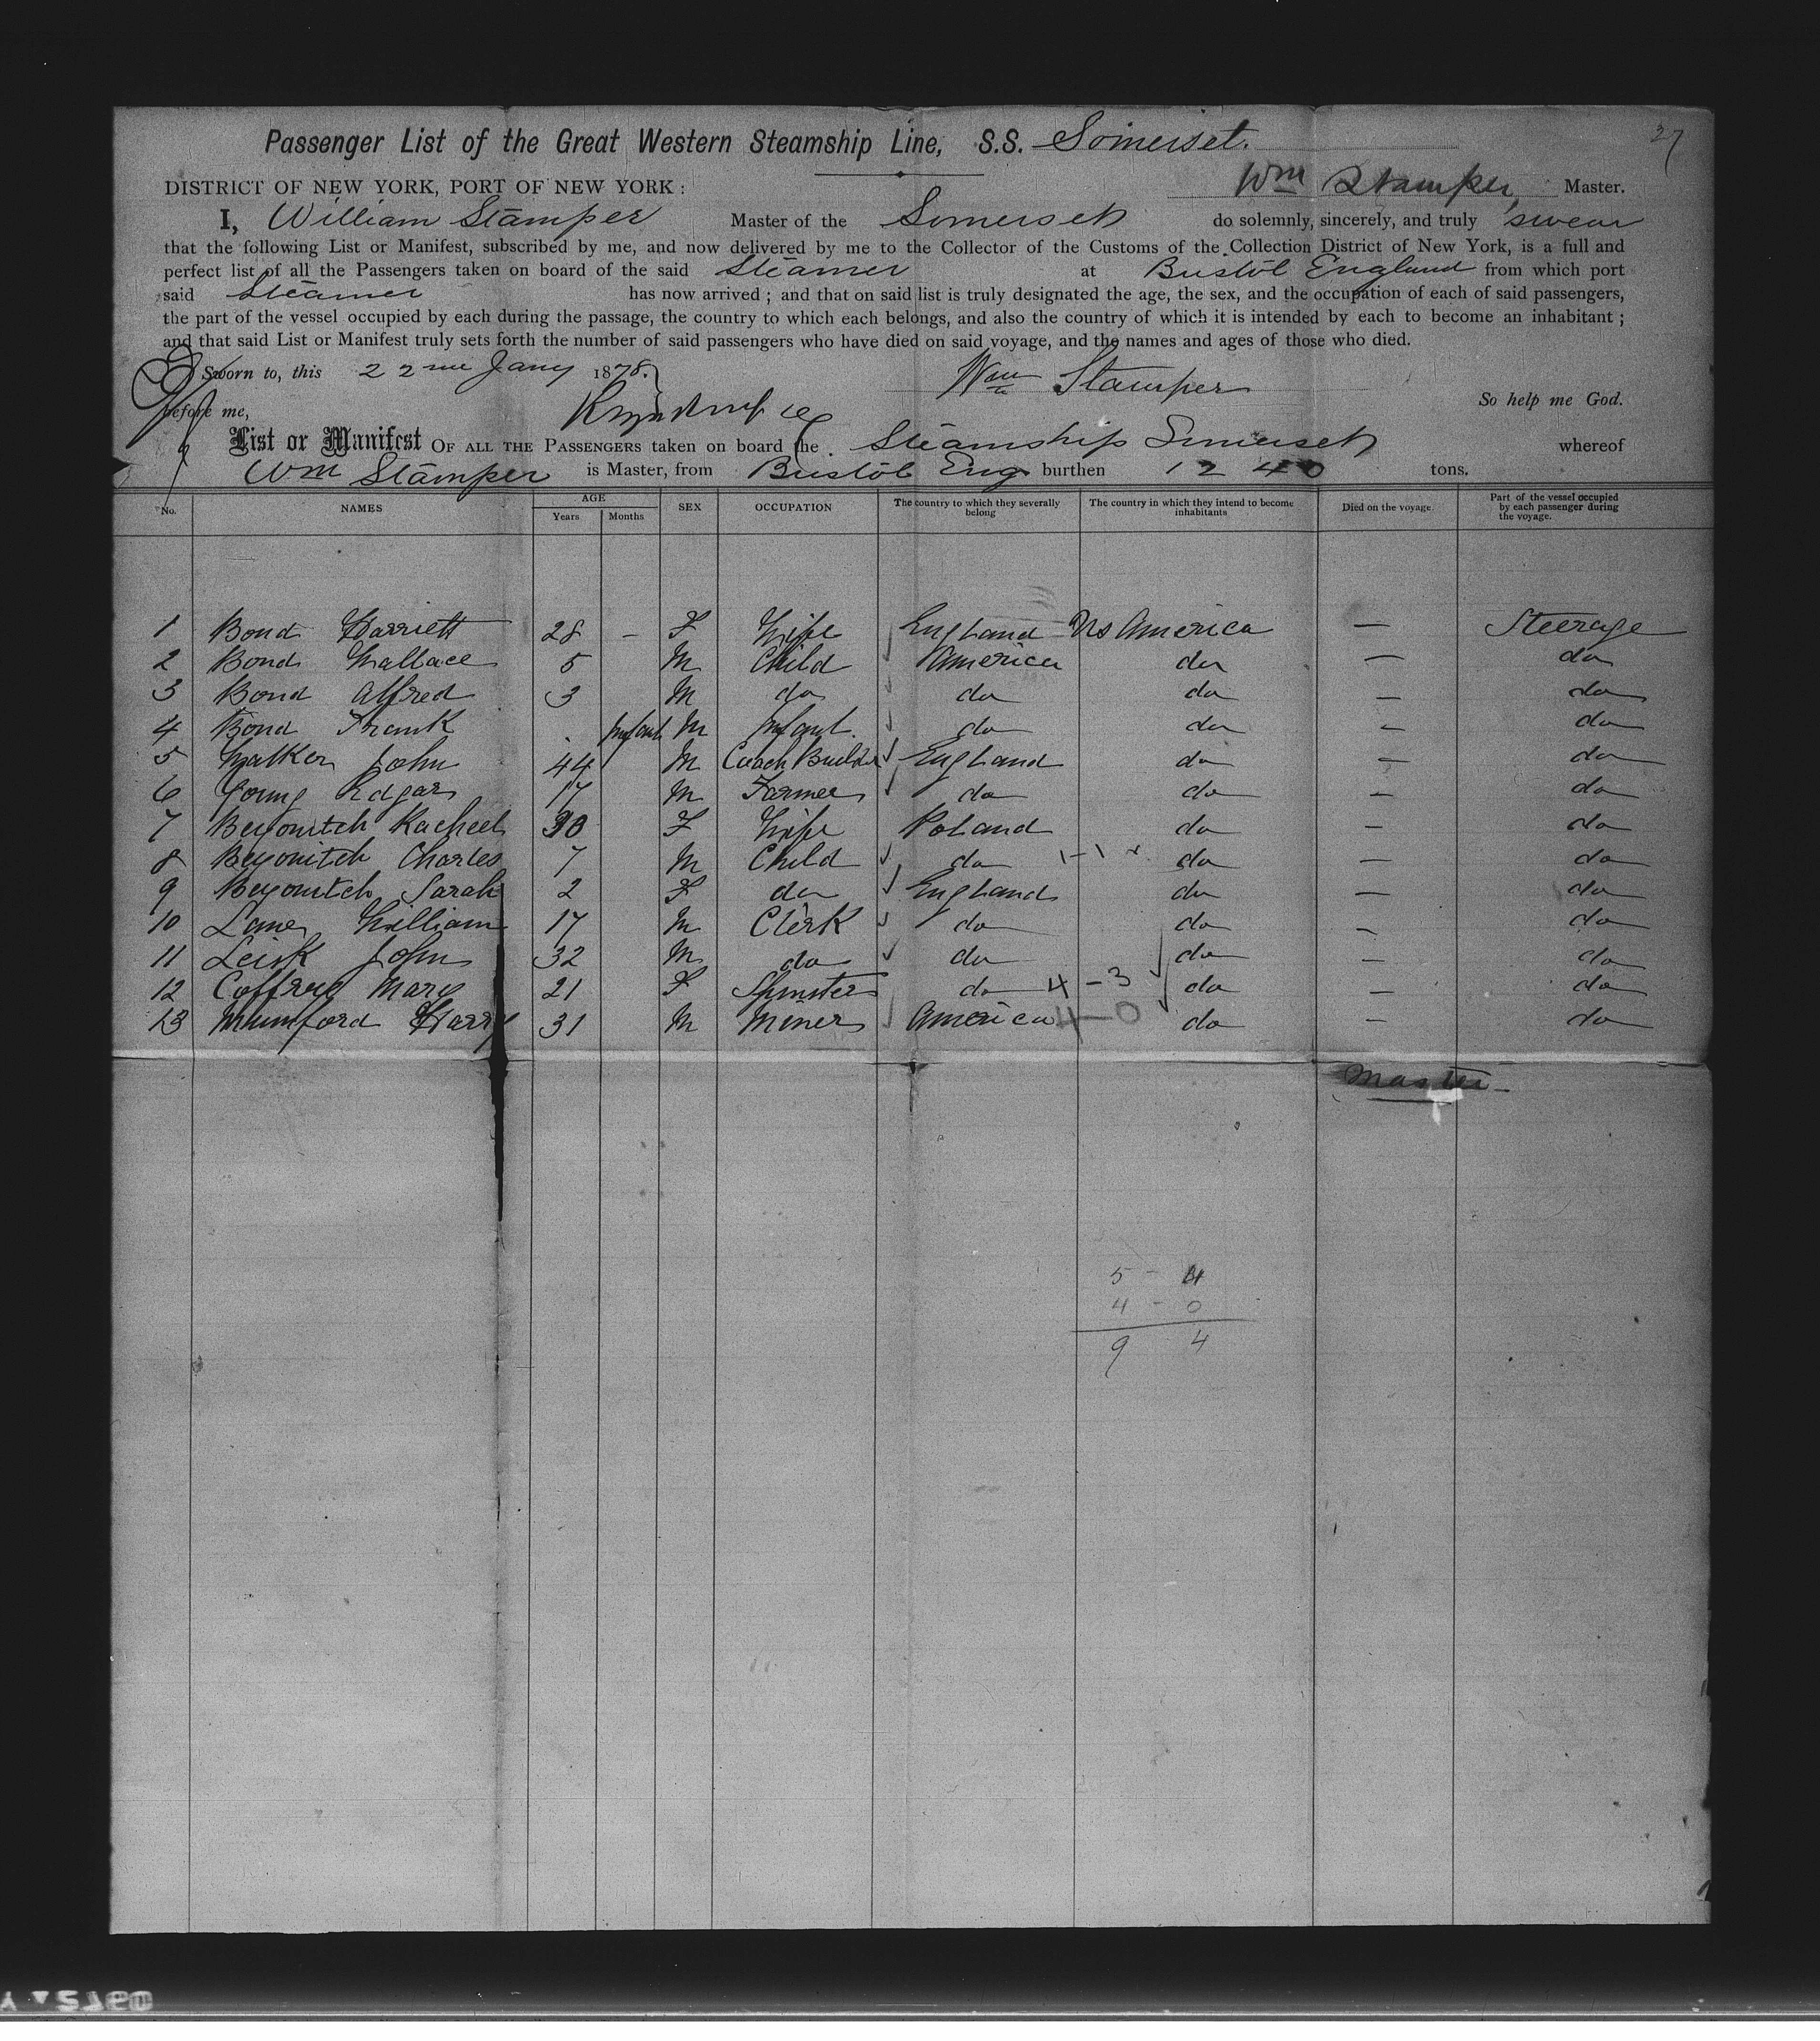 27
Passenger List of the Great Western Steamship Line, S.S. Somerset.
DISTRICT OF NEW YORK, PORT OF NEW YORK : Wm Stamper, Master.
I, William Stamper Master of the Somerset do solemnly, sincerely, and truly swear
that the following List or Manifest, subscribed by me, and now delivered by me to the Collector of the Customs of the Collection District of New York, is a full and
perfect list of all the Passengers taken on board of the said Steamer at Bristol England from which port
said Steamer has now arrived ; and that on said list is truly designated the age, the sex, and the occupation of each of said passengers,
the part of the vessel occupied by each during the passage, the country to which each belongs, and also the country of which it is intended by each to become an inhabitant ;
and that said List or Manifest truly sets forth the number of said passengers who have died on said voyage, and the names and ages of those who died.
Sworn to, this 22nd Jany 1878. Wm Stamper So help me God.
before me,
List or Manifest OF ALL THE PASSENGERS taken on board the Steamship Somerset whereof
Wm Stamper is Master, from Bristol Eng burthen 1240 tons.
No. NAMES AGE Years Months SEX OCCUPATION The country to which they severally belong The country in which they intend to become inhabitants Died on the voyage. Part of the vessel occupied by each passenger during the voyage.
1 Bond Harriett 28 – F Wife England Us America — Steerage
2 Bond Wallace 5 M Child America do — do
3 Bond Alfred 3 M do do do — do
4 Bond Frank Infant M Infant do do — do
5 Walker John 44 M Coach Builder England do — do
6 Young Edgar 17 M Farmer do do — do
7 Beyonitch Racheel 30 F Wife Poland do — do
8 Beyonitch Charles 7 M Child do 1-1 do — do
9 Beyonitch Sarah 2 F do England do — do
10 Lane William 17 M Clerk do do — do
11 Leisk John 32 M do do do — do
12 Mary 21 F Spinster do 4-3 do — do
13 Mumford Harry 31 M Miner America 4-0 do — do
Master
5 - 4
4 - 0
9 4